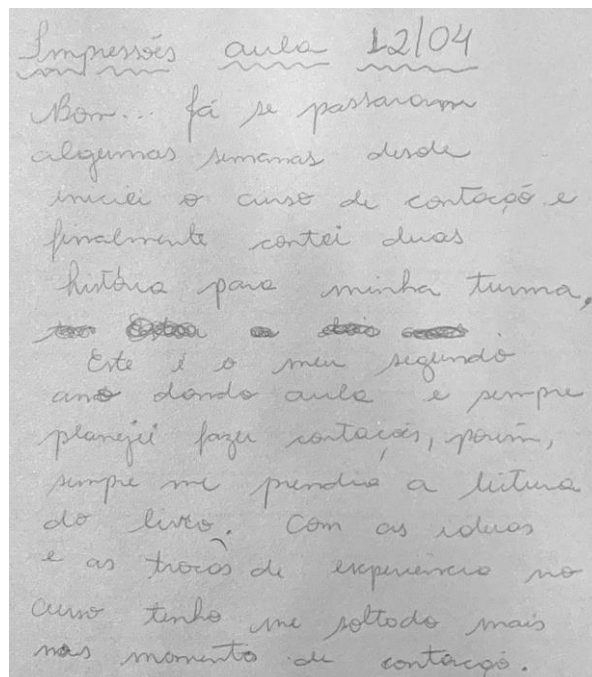 Impressões aula 12/04
Bom... já se passaram
algumas semanas desde
iniciei o curso de contação e
finalmente contei duas
história para minha turma,
Este é o meu segundo
ano dando aula e sempre
planejei fazer contações, porém,
sempre me prendia a leitura
do livro. Com as ideias
e as trocas de experiência no
curso tenho me soltado mais
nos momento de contação.